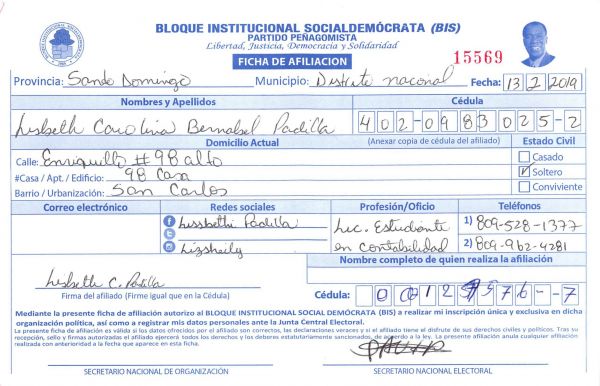 BLOQUE INSTITUCIONAL SOCIALDEMÓCRATA (BIS)
PARTIDO PEÑAGOMISTA
Libertad, Justicia, Democracia y Solidaridad
FICHA DE AFILIACION
15569
Provincia: Santo Domingo Municipio: Distrito nacional Fecha: 13 2 2019
Nombres y Apellidos Cédula
Lisbeth Carolina Bernabel Padilla 402-0983025-2
Domicilio Actual (Anexar copia de cédula del afiliado) Estado Civil
Calle: Enriquillo # 98 alto Casado
#Casa / Apt. / Edificio: 98 Casa Soltero
Barrio / Urbanización: San Carlos Conviviente
Correo electrónico Redes sociales Profesión/Oficio Teléfonos
Lissbethi Padilla Lic. Estudiante 1) 809-528-1377
Lizsheily en Contabilidad 2) 809-962-4281
Nombre completo de quien realiza la afiliación
Lisbeth C. Padilla
Firma del afiliado (Firme igual que en la Cédula) Cédula:
Mediante la presente ficha de afiliación autorizo al BLOQUE INSTITUCIONAL SOCIAL DEMÓCRATA (BIS) a realizar mi inscripción única y exclusiva en dicha
organización política, así como a registrar mis datos personales ante la Junta Central Electoral.
La presente ficha de afiliación es válida si los datos ofrecidos por el afiliado son correctos, las declaraciones veraces y si el afiliado tiene el disfrute de sus derechos civiles y políticos. Tras su
recepción, sello y firmas autorizadas el afiliado ejercerá todos los derechos y los deberes estatutariamente sancionados, de acuerdo a la ley. La presente afiliación anula cualquier afiliación
realizada con anterioridad a la fecha que aparece en esta ficha.
SECRETARIO NACIONAL DE ORGANIZACIÓN SECRETARIO NACIONAL ELECTORAL